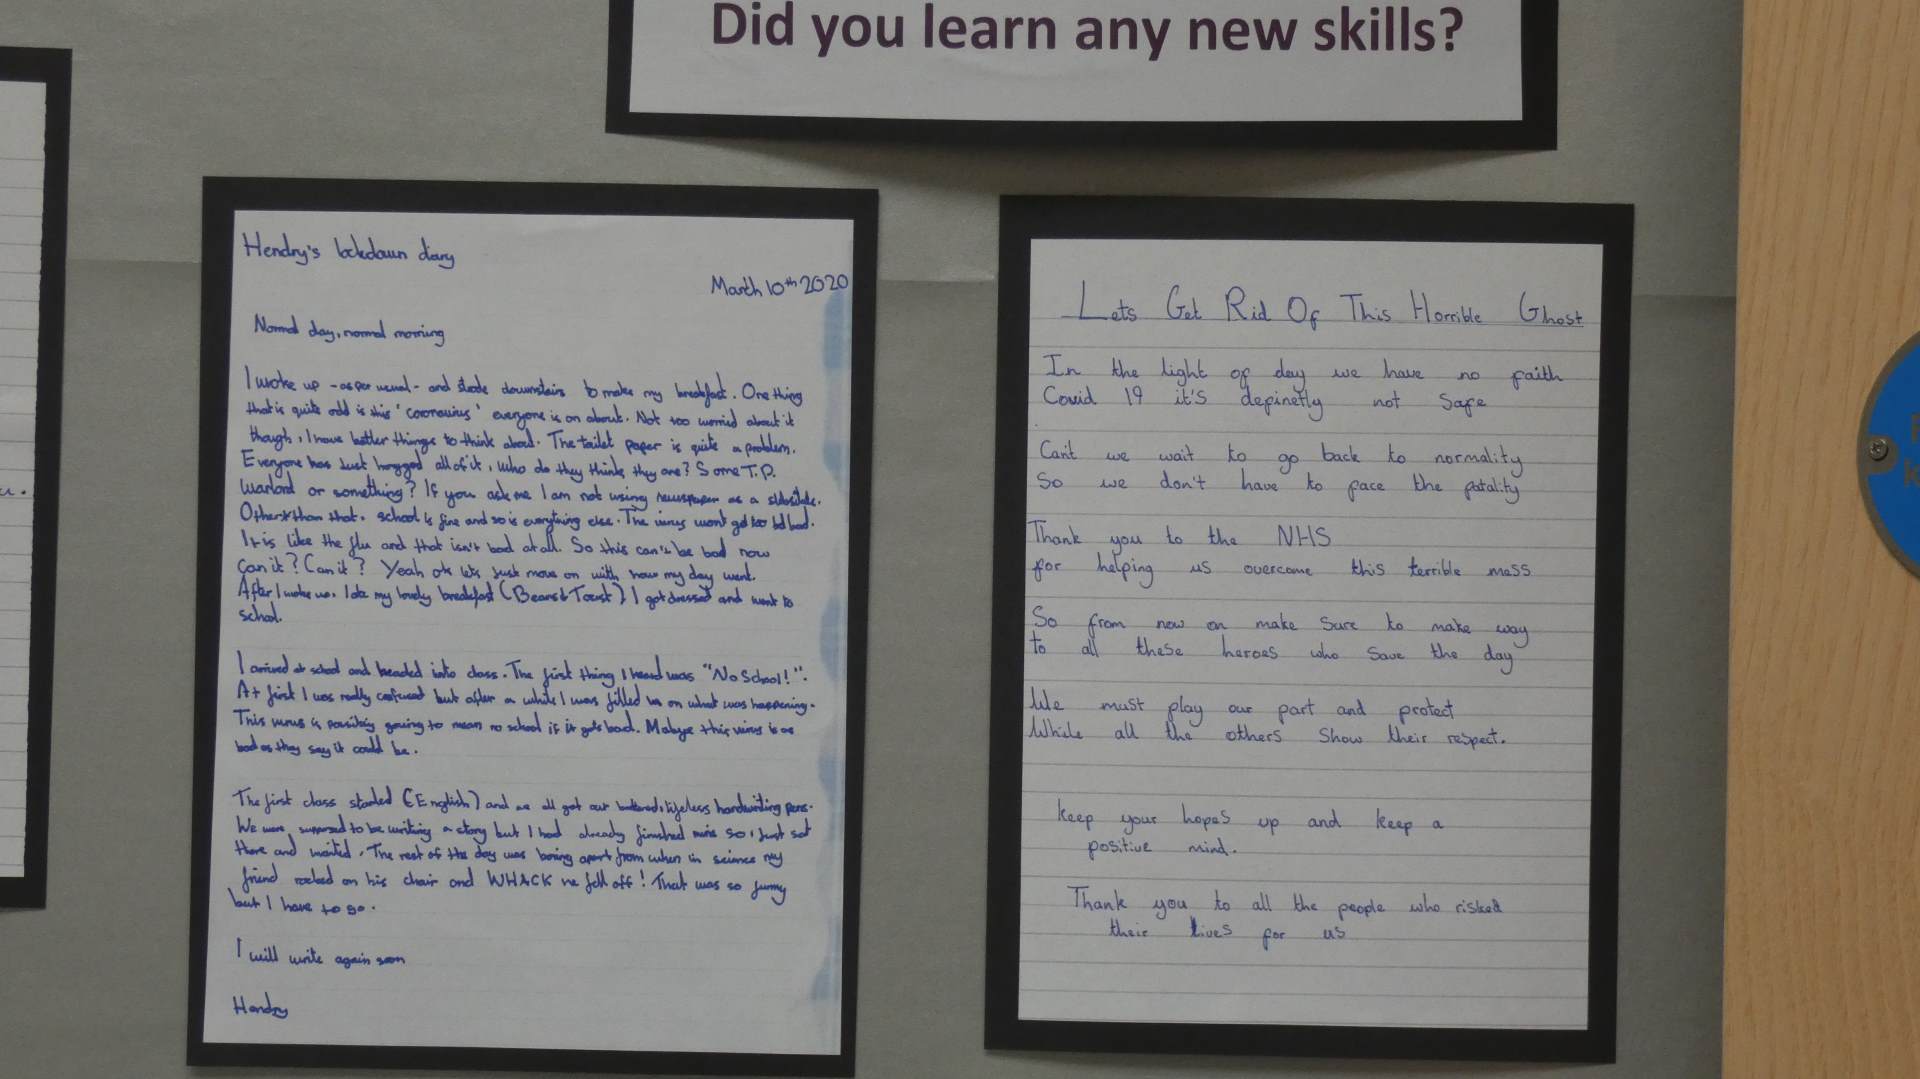 Did you learn any new skills?
Hendry's lockdown diary
March 10th 2020
Normal day, normal morning
I woke up - as per usual - and strode downstairs to make my breakfast. One thing
that is quite odd is this 'coronavirus' everyone is on about. Not too worried about it
though, I have better things to think about. The toilet paper is quite a problem.
Everyone has just hogged all of it, who do they think they are? Some T.P.
Warlord or something? If you ask me I am not using newspaper as a
Other than that. school is fine and so is everything else. The virus wont get too bad.
It is like the flu and that isn't bad at all. So this can't be bad now
can it? Can it? Yeah ok lets just move on with how my day went.
After I woke up. I ate my lovely breakfast (Beans & Toast) I got dressed and went to
school.
I arrived at school and headed into class. The first thing I heard was "No School!".
At first I was really confused but after a while I was filled in on what was happening.
This virus is going to mean no school if it gets bad. Mabye this virus is as
bad as they say it could be.
The first class started (English) and we all got our lifeless handwriting pens.
We were supposed to be writing a story but I had already finished mine so I just sat
there and waited. The rest of the day was boring apart from when in science my
friend rocked on his chair and WHACK he fell off! That was so funny
but I have to go.
I will write again soon
Hendry
Lets Get Rid Of This Horrible Ghost
In the light of day we have no faith
Covid 19 it's definetly not safe
Can't we wait to go back to normality
So we don't have to face the fatality
Thank you to the NHS
for helping us overcome this terrible mess
So from now on make sure to make way
to all these heroes who save the day
We must play our part and protect
While all the others show their respect.
keep your hopes up and keep a
positive mind.
Thank you to all the people who risked
their lives for us